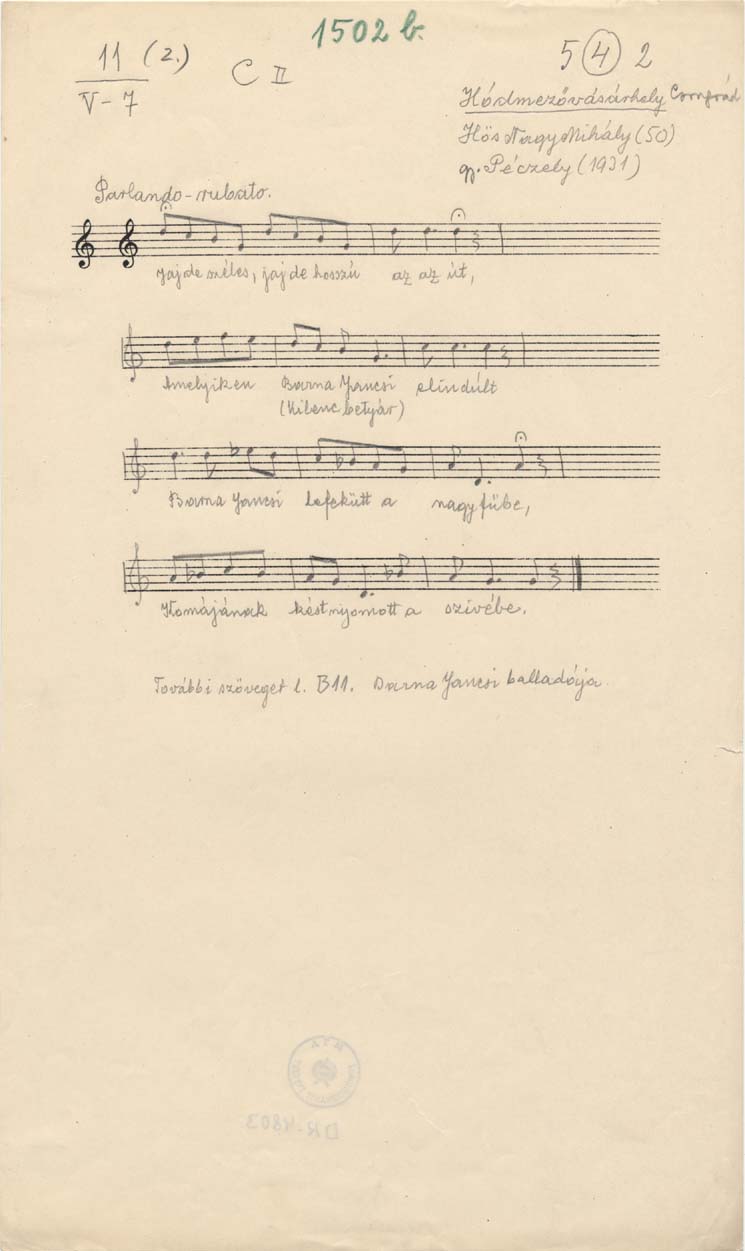 1502 b.
11 (2.)
V-7
C II
5 4 2
Hódmezővásárhely Csongrád
Hős Nagy Mihály (50)
gy. Péczely (1931)
Parlando-rubato.
Jaj de széles, jaj de hosszú az az út,
Amelyiken Barna Jancsi elindúlt
(Kilenc betyár)
Barna Jancsi lefekütt a nagy fűbe,
Komájának kést nyomott a szivébe.
További szöveget l. B11. Barna Jancsi balladája.
DR-4803